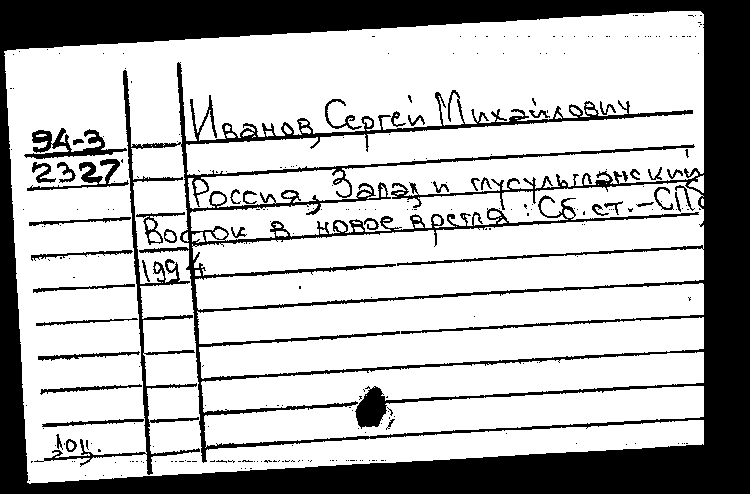 Иванов, Сергей Михайлович
94-3
2327
Россия, Запад и мусульманский
Восток в новое время : Сб. ст. - СПб
1994